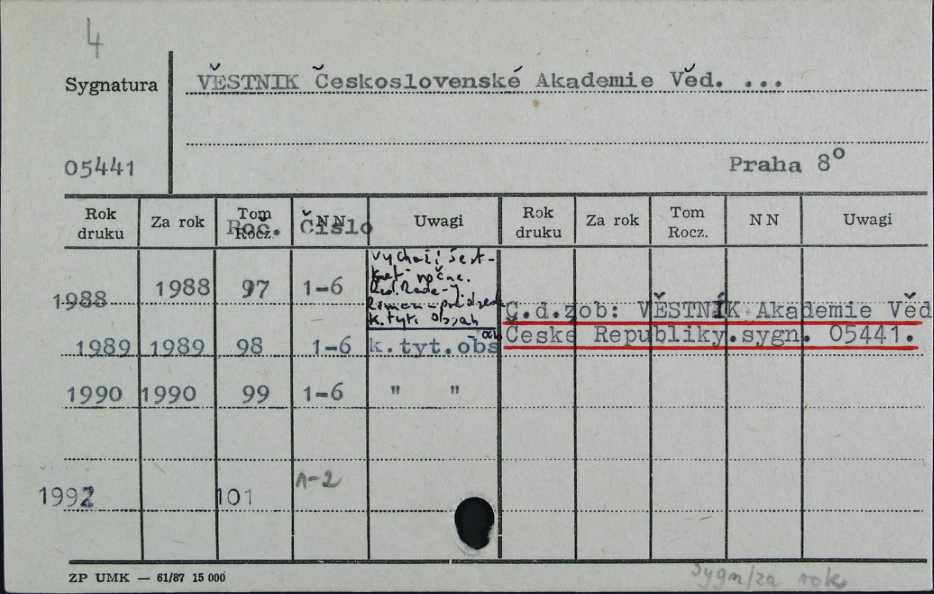 4
Sygnatura VĚSTNIK Československé Akademie Věd. ...
05441 Praha 8°
Rok druku Za rok Tom Rocz. Roč. NN Číslo Uwagi Rok druku Za rok Tom Rocz. NN Uwagi
1988 1988 97 1-6
k. tyt. obsah
C.d.zob: VĚSTNÍK Akademie Věd
1989 1989 98 1-6 k.tyt.obs České Republiky.sygn. 05441.
1990 1990 99 1-6 " "
1992 101 1-2
ZP UMK — 61/87 15 000
Sygn/za rok